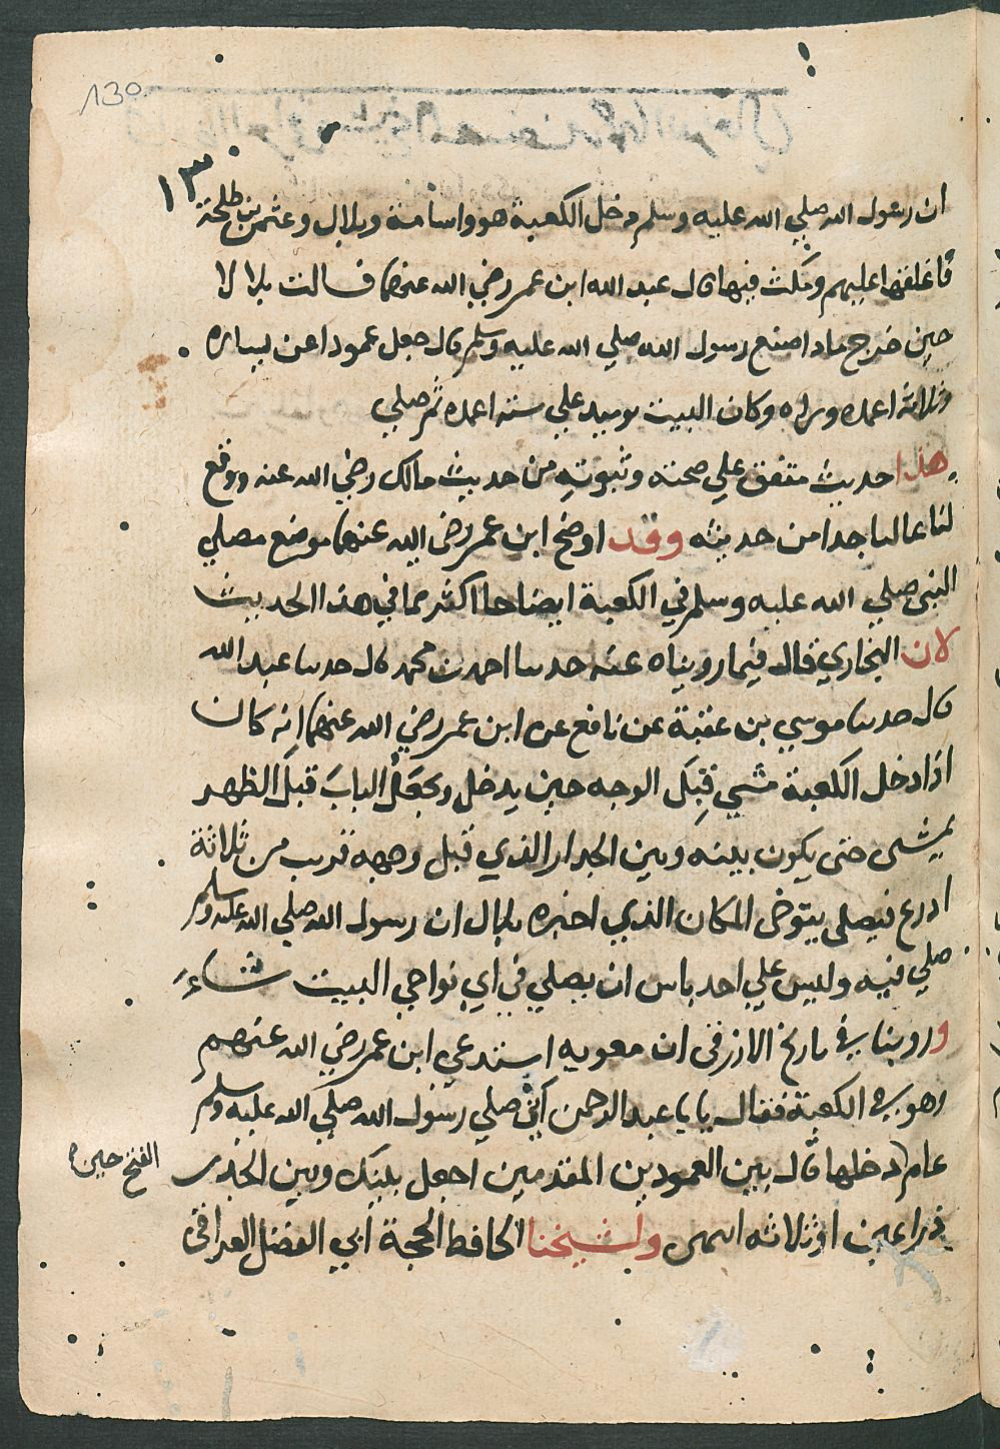 130
١٣
ان رسول الله صلي الله عليه وسلم دخل الكعبة هو واسامة وبلال وعثمن بن طلحة
فاغلقها عليهم ومكث فيها قال عبد الله ابن عمر رضي الله عنهما فسالت بلالا لا
حين خرج ماذا صنع رسول الله صلي الله عليه وسلم قال جعل عمودا عن يساره
وثلاثة اعمده وراه وكان البيت يوميد علي ستة اعمده ثم صلي
هذا حديث متفق علي صحته وثبوته من حديث مالك رضي الله عنه ووقع
لنا عاليا جدا من حديثه وقد اوضح ابن عمر رضي الله عنهما موضع مصلي
النبي صلي الله عليه وسلم في الكعبة ايضاحا اكثر مما في هذا الحديث
لان البخاري قال فيما رويناه عنه حدثنا احمد بن محمد قال حدثنا عبد الله
قال حدثنا موسي بن عقبة عن نافع عن ابن عمر رضي الله عنهما انه كان
اذا دخل الكعبة مشي قِبَل الوجه حين يدخل ويجعل الباب قبل الظهر
يمشي حتى يكون بينه وبين الجدار الذي قبل وجهه قريب من ثلاثة
اذرع فيصلي يتوخى المكان الذي اخبره بلال ان رسول الله صلي الله عليه وسلم
صلي فيه وليس علي احد باس ان يصلي في اي نواحي البيت شاء
وروينا في تاريخ الازرقي ان معويه استدعي ابن عمر رضي الله عنهم
وهو في الكعبة فقال يا با عبد الرحمن اين صلي رسول الله صلي الله عليه وسلم
عام دخلها قال بين العمودين المقدمين اجعل بينك وبين الجدر
الفتح حين
ذراعين او ثلاثه انتهى ولشيخنا الحافظ الحجة ابي الفضل العراقي